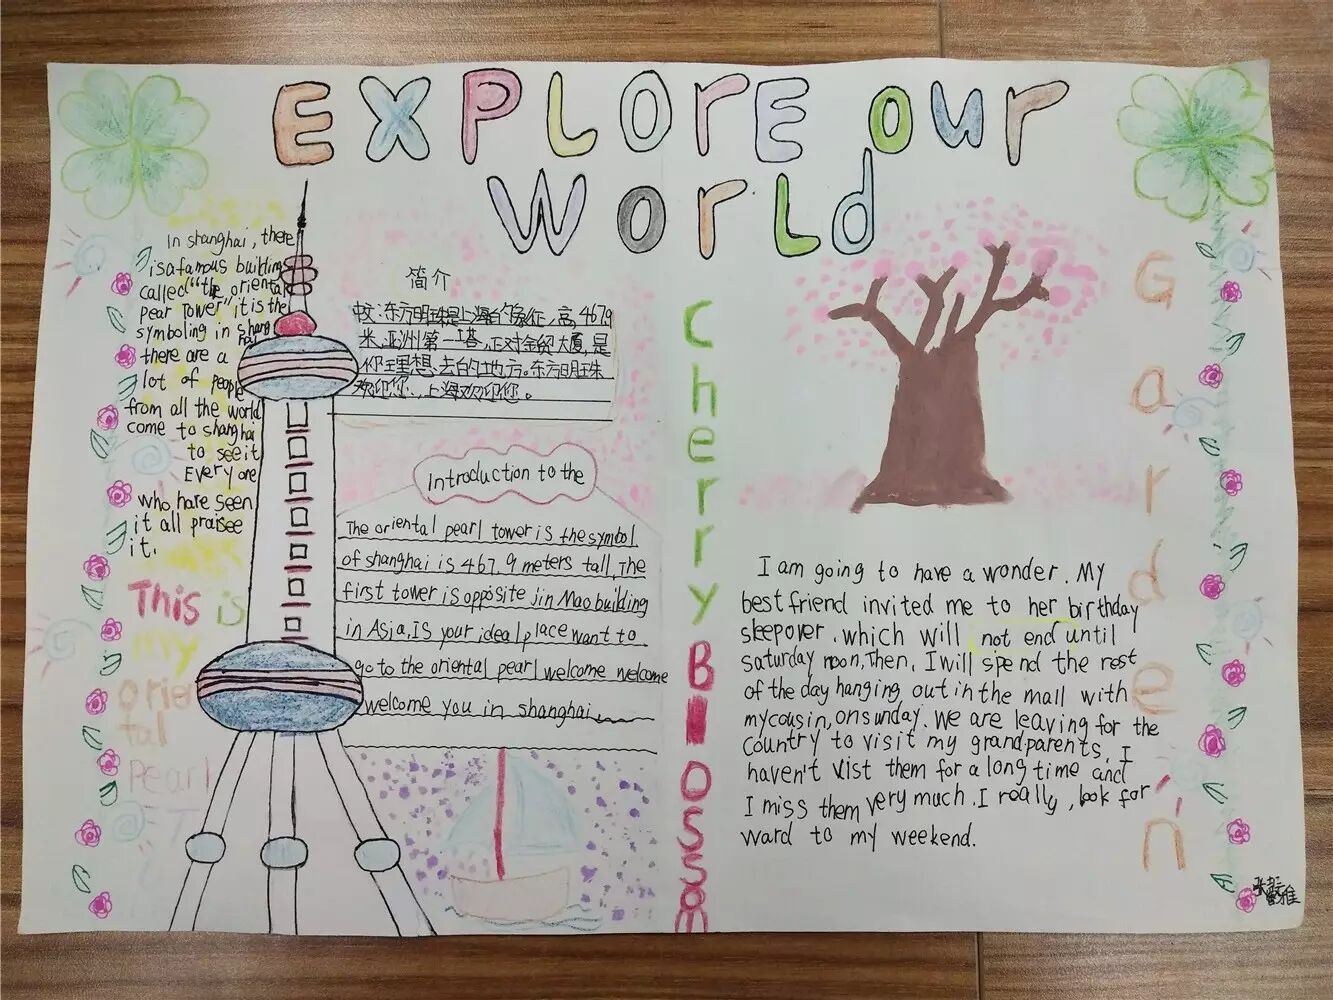 EXPLORE our
World
In shanghai, there
is a famous building
called "the oriental
pear Tower" it is the
symboling in shang
hai
there are a
lot of people
from all the world
come to shanghai
to see it
Every one
who have seen
it all praisee
it.
This is
my
orien
tal
pearl
简介
东方明珠是上海的象征,高467.9
米,亚洲第一塔,正对金贸大厦,是
你理想去的地方。东方明珠
欢迎您,上海欢迎您。
Introduction to the
The oriental pearl tower is the symbol
of shanghai is 467.9 meters tall, The
first tower is opposite jin Mao building
in Asia, IS your ideal place want to
go to the oriental pearl welcome welcome
welcome you in shanghai
Cherry Blossom
Garden
I am going to have a wonder. My
best friend invited me to her birthday
sleepover. which will not end until
saturday noon, Then, I will spend the rest
of the day hanging out in the mall with
my cousin, on sunday. We are leaving for the
country to visit my grandparents. I
haven't vist them for a long time and
I miss them very much. I really, look for
ward to my weekend.